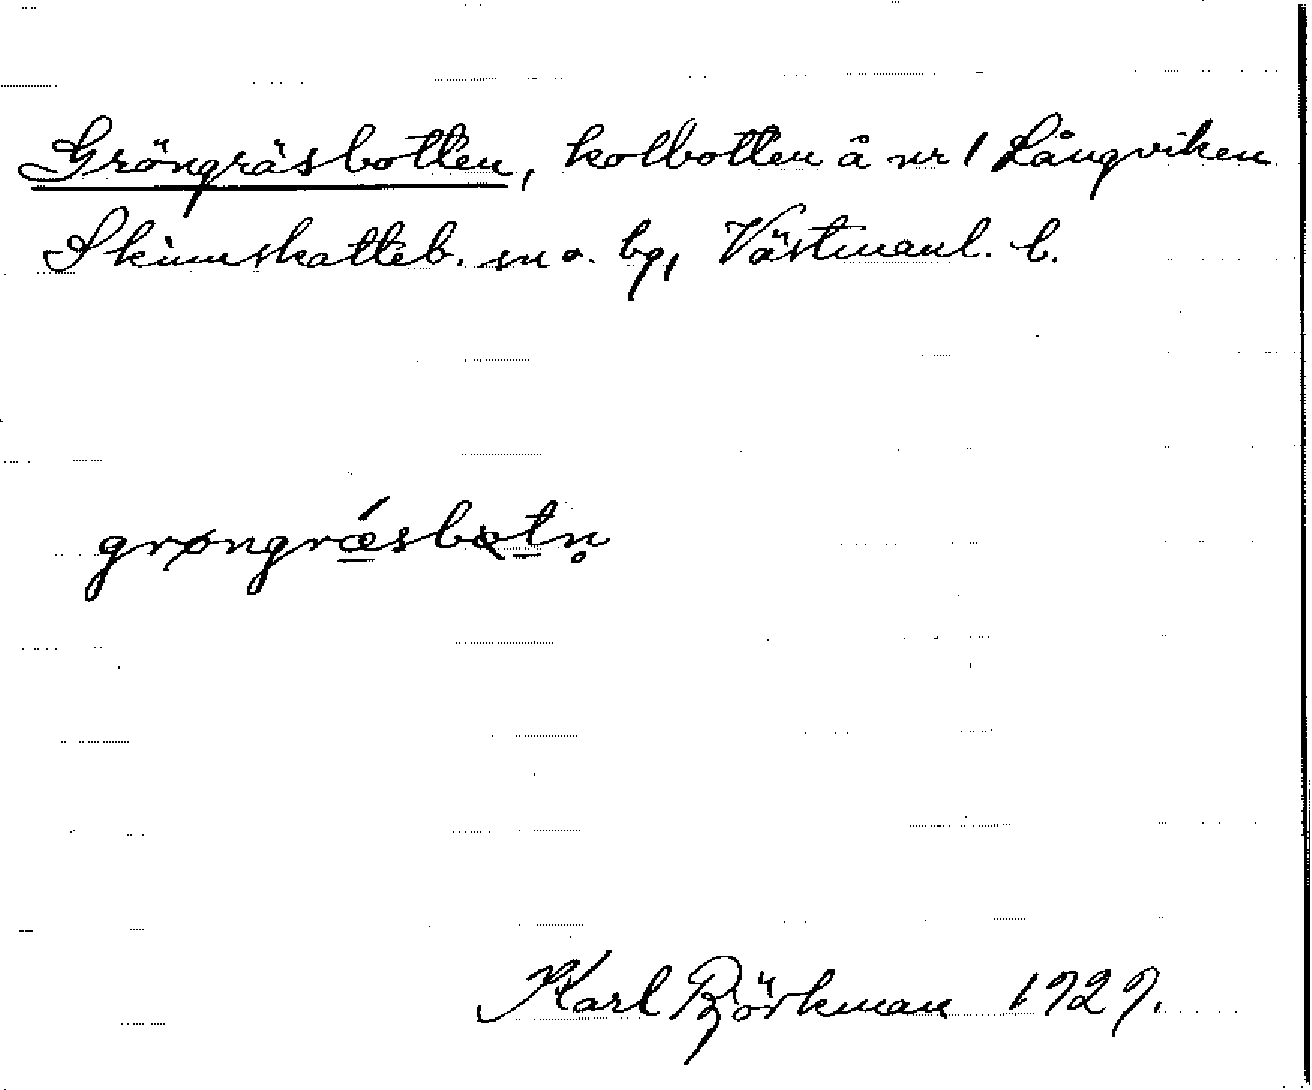 Gröngräsbotten, kolbotten å nr 1 Långviken
Skinnskatteb. sn o. bg, Västmanl. l.
grøngrǽsbòtn̥
Karl Björkman 1929.